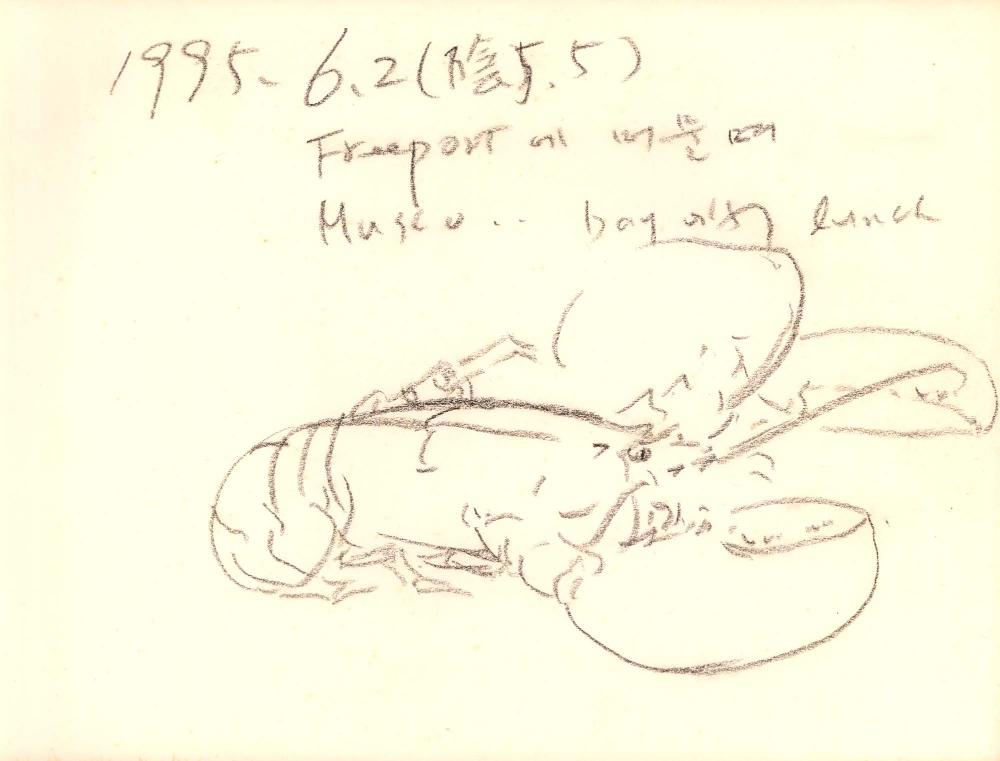 1995. 6.2 (陰5.5)
Freeport에 머물때
Musco.. bay에서 lunch